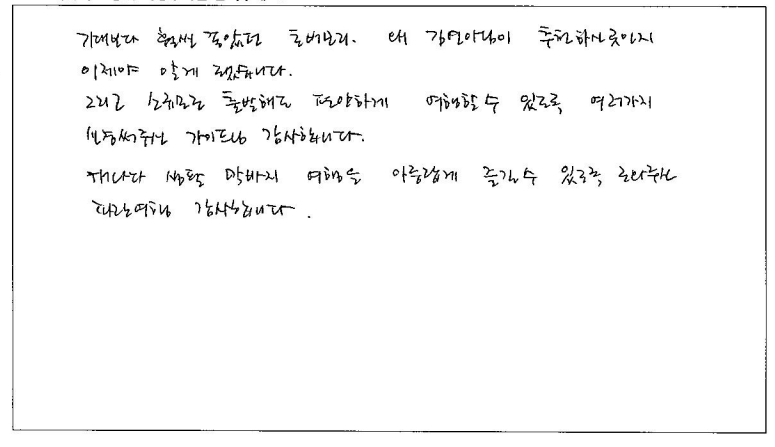 기대보다 훨씬 좋았던 토버모리. 왜 김연아님이 추천하신곳인지
이제야 알게 됐습니다.
그리고 소규모로 출발해도 편안하게 여행할수 있도록 여러가지
신경써주신 가이드님 감사합니다.
캐나다 생활 막바지 여행을 아름답게 즐길수 있도록 도와주신
파란여행 감사합니다.